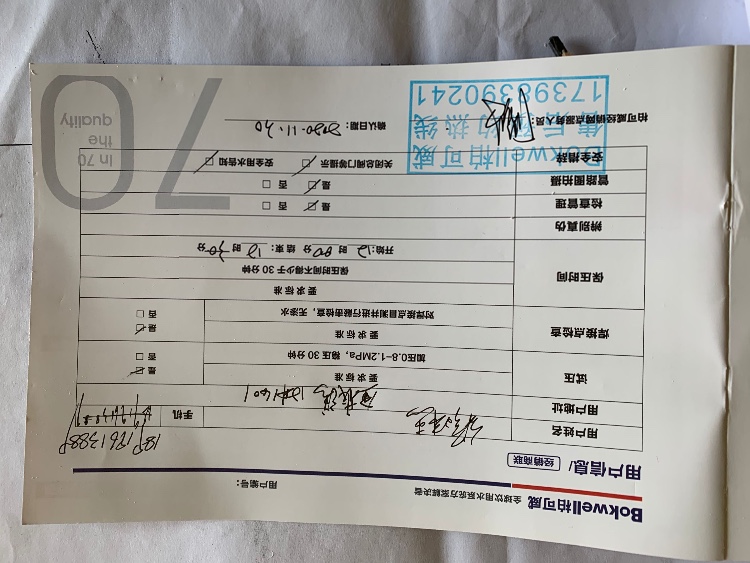 Bokwell柏可威
全球饮用水系统方案解决者
用户编号：
用户信息/ 经销商联
用户姓名
手机
1891
1361388
用户地址
1401
试压
要求标准
是
加压0.8-1.2MPa，稳压30分钟
否
焊接点检查
要求标准
是
对焊接点目测并进行敲击检查，无渗水
否
保压时间
要求标准
保压时间不得少于30分钟
开始:12时00分 结束：12时30分
辨别真伪
检查管理
是 否
管路图拍摄
是 否
安全措辞
关闭总阀门等提示 安全用水告知
柏可威经销网点服务人员：
确认日期：2020.11.20
Bokwell柏可威
售后预约热线
17398390241
In 70
the
quality
70